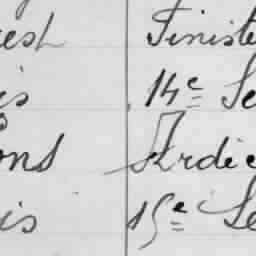 esh Finist
is 14e Se
ons Ardè
is 15e Se